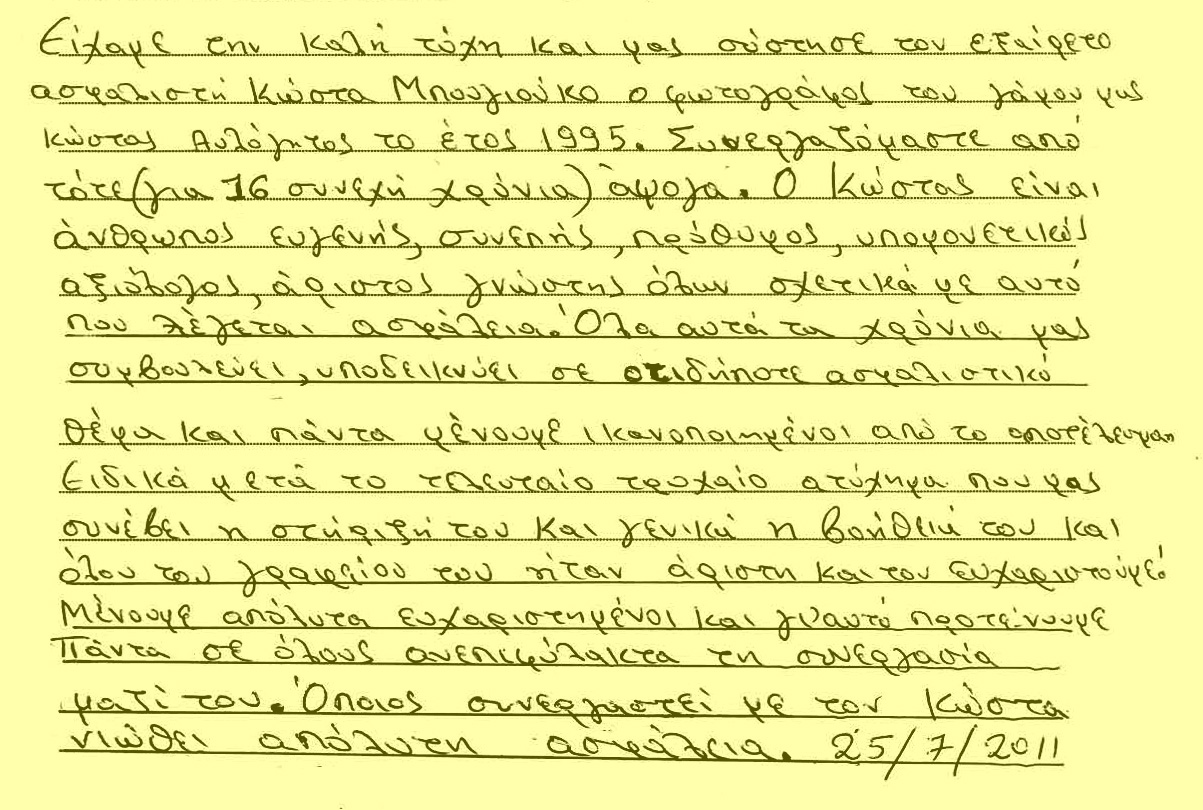 Είχαμε την καλή τύχη και μας σύστησε τον εξαίρετο
ασφαλιστή Κώστα Μπουγιούκο ο φωτογράφος του γάμου μας
Κώστας Αυλόγητος το έτος 1995. Συνεργαζόμαστε από
τότε (για 16 συνεχή χρόνια) άψογα. Ο Κώστας είναι
άνθρωπος ευγενής, συνεπής, πρόθυμος, υπομονετικός
αξιόλογος, άριστος γνώστης όλων σχετικά με αυτό
που λέγεται ασφάλεια. Όλα αυτά τα χρόνια μας
συμβουλεύει, υποδεικνύει σε οτιδήποτε ασφαλιστικό
θέμα και πάντα μένουμε ικανοποιημένοι από το αποτέλεσμα
Ειδικά μετά το τελευταίο τροχαίο ατύχημα που μας
συνέβει η στήριξή του και γενικά η βοήθειά του και
όλου του γραφείου του ήταν άριστη και τον ευχαριστούμε!
Μένουμε απόλυτα ευχαριστημένοι και γι'αυτό προτείνουμε
Πάντα σε όλους ανεπιφύλακτα τη συνεργασία
μαζί του. Όποιος συνεργαστεί με τον Κώστα
νιώθει απόλυτη ασφάλεια. 25/7/2011